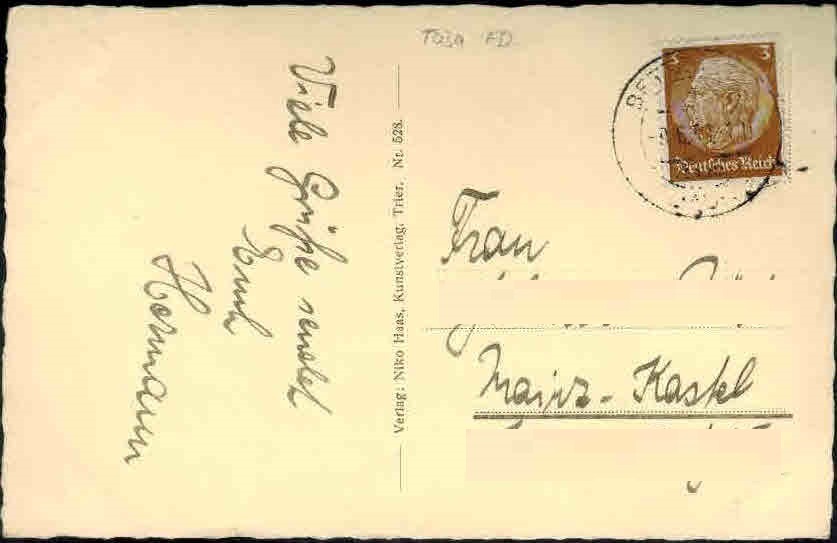 Viele Grüße sendet
Euch
Hermann
Verlag: Niko Haas, Kunstverlag, Trier. Nr. 528.
3 3
Deutsches Reich
Frau
Mainz-Kastel